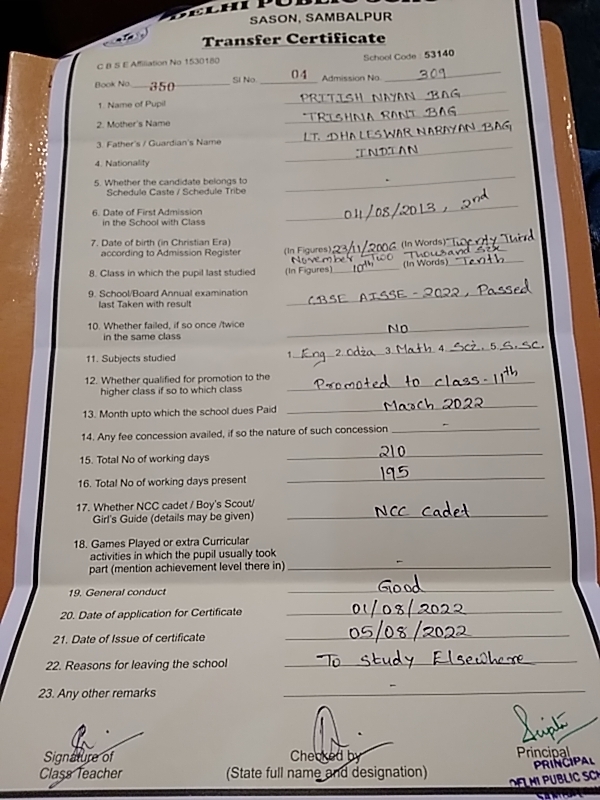 DELHI PUBLIC SCHO
SASON, SAMBALPUR
Transfer Certificate
C B S E Affiliation No 1530180 School Code : 53140
Book No. 350 Sl No. 04 Admission No. 309
1. Name of Pupil PRITISH NAYAN BAG
2. Mother's Name TRISHNA RANI BAG
3. Father's / Guardian's Name LT. DHALESWAR NARAYAN BAG
4. Nationality INDIAN
5. Whether the candidate belongs to
Schedule Caste / Schedule Tribe -
6. Date of First Admission
in the School with Class 01/08/2013, 2nd
7. Date of birth (in Christian Era) (In Figures) 23/11/2006 (In Words) Twenty Third
according to Admission Register November Two Thousand Six
8. Class in which the pupil last studied (In Figures) 10th (In Words) Tenth
9. School/Board Annual examination
last Taken with result CBSE AISSE - 2022, Passed
10. Whether failed, if so once /twice
in the same class NO
11. Subjects studied 1. Eng 2. Odia 3. Math 4. Sci. 5. S. Sc.
12. Whether qualified for promotion to the
higher class if so to which class Promoted to class - 11th
13. Month upto which the school dues Paid March 2022
14. Any fee concession availed, if so the nature of such concession -
15. Total No of working days 210
16. Total No of working days present 195
17. Whether NCC cadet / Boy's Scout/
Girl's Guide (details may be given) NCC Cadet
18. Games Played or extra Curricular
activities in which the pupil usually took
part (mention achievement level there in) -
19. General conduct Good
20. Date of application for Certificate 01/08/2022
21. Date of Issue of certificate 05/08/2022
22. Reasons for leaving the school To Study Elsewhere
23. Any other remarks -
Signature of Checked by Principal
Class Teacher (State full name and designation) PRINCIPAL
DELHI PUBLIC SCH